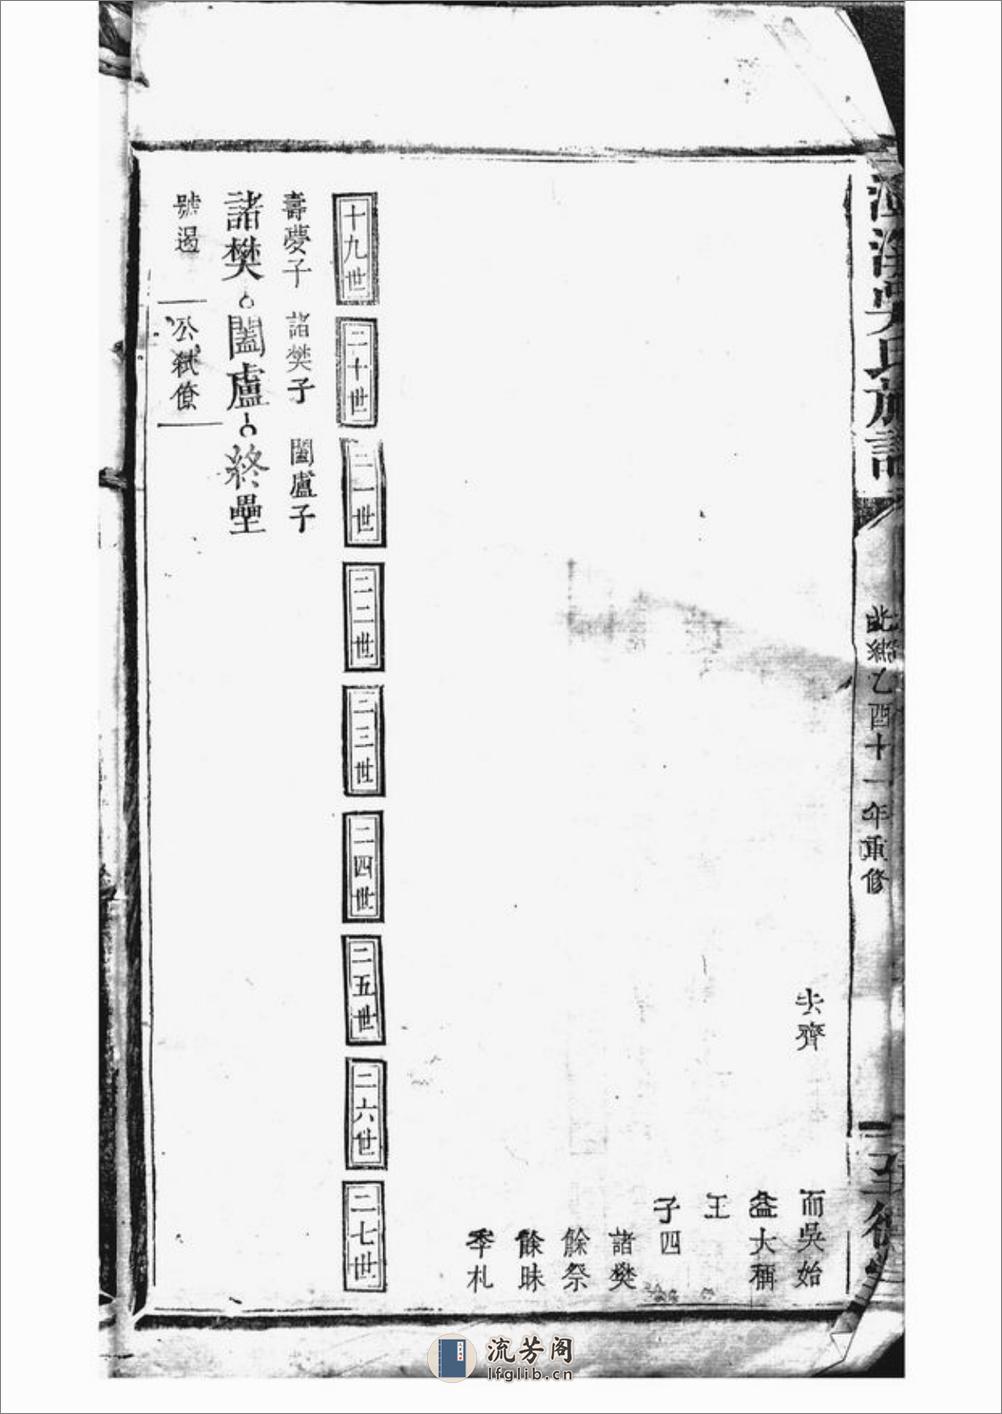 吳氏族譜
乙酉十一年重修
齊
而吳始
益大稱
王
子四
諸樊
餘祭
餘昧
季札
十九世
二十世
二一世
二二世
二三世
二四世
二五世
二六世
二七世
壽夢子
諸樊子
闔盧子
諸樊
闔盧
終壘
號遏
公弒僚
流芳阁
lfglib.cn